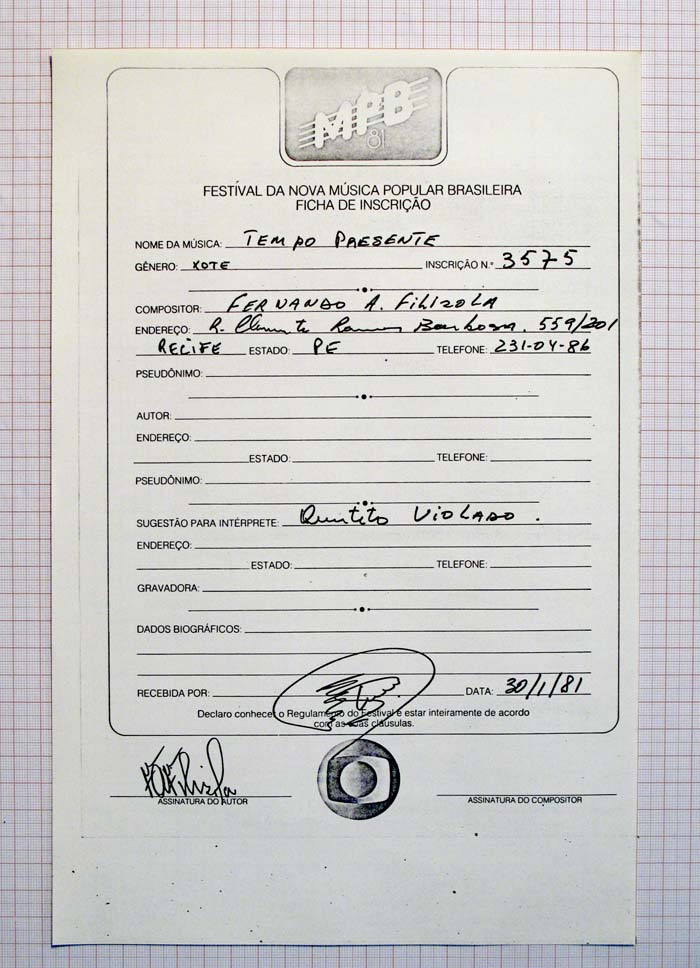 MPB
81
FESTIVAL DA NOVA MÚSICA POPULAR BRASILEIRA
FICHA DE INSCRIÇÃO
NOME DA MÚSICA: TEMPO PRESENTE
GÊNERO: XOTE INSCRIÇÃO N.º 3575
COMPOSITOR: FERNANDO A. FILIZOLA
ENDEREÇO: R. Ramos Barbosa. 559/201
RECIFE ESTADO: PE TELEFONE: 231-04-86
PSEUDÔNIMO:
AUTOR:
ENDEREÇO:
ESTADO: TELEFONE:
PSEUDÔNIMO:
SUGESTÃO PARA INTÉRPRETE: Quinteto VIOLADO.
ENDEREÇO:
ESTADO: TELEFONE:
GRAVADORA:
DADOS BIOGRÁFICOS:
RECEBIDA POR: DATA: 30/1/81
Declaro conhecer o Regulamento do Festival e estar inteiramente de acordo
com as suas cláusulas.
ASSINATURA DO AUTOR ASSINATURA DO COMPOSITOR